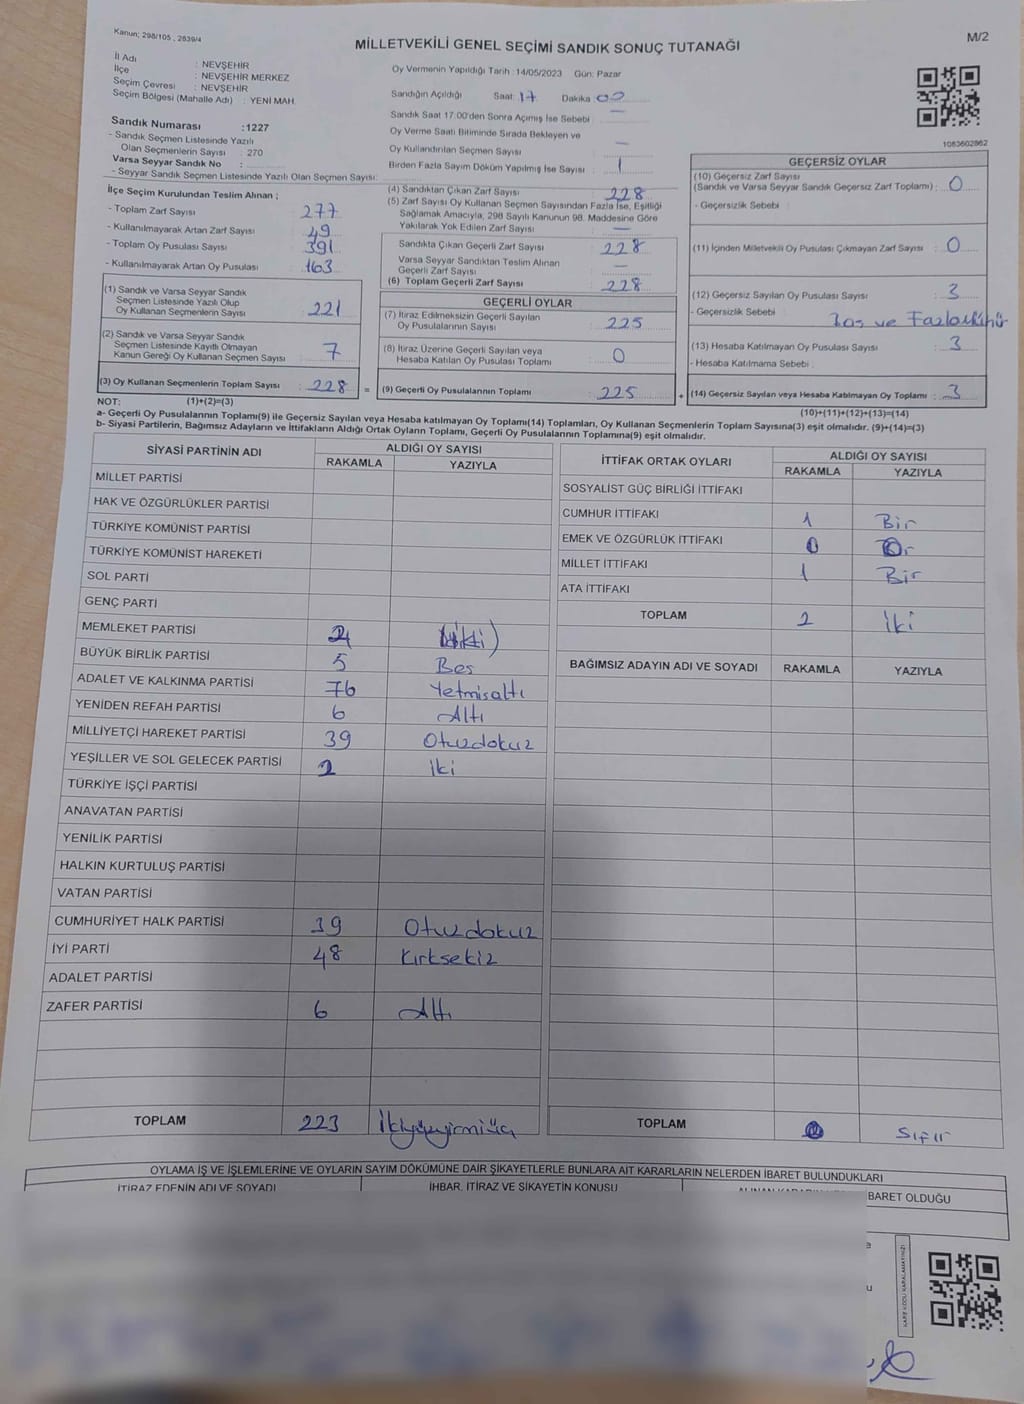 Kanun; 298/105 , 2839/4
M/2
MİLLETVEKİLİ GENEL SEÇİMİ SANDIK SONUÇ TUTANAĞI
İl Adı : NEVŞEHİR
İlçe : NEVŞEHİR MERKEZ
Seçim Çevresi : NEVŞEHİR
Seçim Bölgesi (Mahalle Adı) : YENİ MAH.
Sandık Numarası :1227
- Sandık Seçmen Listesinde Yazılı
Olan Seçmenlerin Sayısı : 270
Varsa Seyyar Sandık No :
- Seyyar Sandık Seçmen Listesinde Yazılı Olan Seçmen Sayısı:
Oy Vermenin Yapıldığı Tarih :14/05/2023 Gün: Pazar
Sandığın Açıldığı Saat: 17 Dakika 00
Sandık Saat 17.00'den Sonra Açımış İse Sebebi : —
Oy Verme Saati Bitiminde Sırada Bekleyen ve
Oy Kullandırılan Seçmen Sayısı : —
Birden Fazla Sayım Döküm Yapılmış İse Sayısı : 1
1083602862
İlçe Seçim Kurulundan Teslim Alınan ;
- Toplam Zarf Sayısı : 277
- Kullanılmayarak Artan Zarf Sayısı : 49
- Toplam Oy Pusulası Sayısı : 391
- Kullanılmayarak Artan Oy Pusulası : 163
(1) Sandık ve Varsa Seyyar Sandık
Seçmen Listesinde Yazılı Olup
Oy Kullanan Seçmenlerin Sayısı : 221
(2) Sandık ve Varsa Seyyar Sandık
Seçmen Listesinde Kayıtlı Olmayan
Kanun Gereği Oy Kullanan Seçmen Sayısı : 7
(3) Oy Kullanan Seçmenlerin Toplam Sayısı : 228 =
(4) Sandıktan Çıkan Zarf Sayısı : 228
(5) Zarf Sayısı Oy Kullanan Seçmen Sayısından Fazla İse, Eşitliği
Sağlamak Amacıyla, 298 Sayılı Kanunun 98. Maddesine Göre
Yakılarak Yok Edilen Zarf Sayısı : —
Sandıkta Çıkan Geçerli Zarf Sayısı : 228
Varsa Seyyar Sandıktan Teslim Alınan
Geçerli Zarf Sayısı : —
(6) Toplam Geçerli Zarf Sayısı : 228
GEÇERLİ OYLAR
(7) İtiraz Edilmeksizin Geçerli Sayılan
Oy Pusulalarının Sayısı : 225
(8) İtiraz Üzerine Geçerli Sayılan veya
Hesaba Katılan Oy Pusulası Toplamı : 0
(9) Geçerli Oy Pusulalarının Toplamı : 225 +
GEÇERSİZ OYLAR
(10) Geçersiz Zarf Sayısı
(Sandık ve Varsa Seyyar Sandık Geçersiz Zarf Toplamı) : 0
- Geçersizlik Sebebi :
(11) İçinden Milletvekili Oy Pusulası Çıkmayan Zarf Sayısı : 0
(12) Geçersiz Sayılan Oy Pusulası Sayısı : 3
- Geçersizlik Sebebi : Boş ve Fazla
(13) Hesaba Katılmayan Oy Pusulası Sayısı : 3
- Hesaba Katılmama Sebebi :
(14) Geçersiz Sayılan veya Hesaba Katılmayan Oy Toplamı : 3
NOT: (1)+(2)=(3) (10)+(11)+(12)+(13)=(14)
a- Geçerli Oy Pusulalarının Toplamı(9) ile Geçersiz Sayılan veya Hesaba katılmayan Oy Toplamı(14) Toplamları, Oy Kullanan Seçmenlerin Toplam Sayısına(3) eşit olmalıdır. (9)+(14)=(3)
b- Siyasi Partilerin, Bağımsız Adayların ve İttifakların Aldığı Ortak Oyların Toplamı, Geçerli Oy Pusulalarının Toplamına(9) eşit olmalıdır.
SİYASİ PARTİNİN ADI ALDIĞI OY SAYISI
RAKAMLA YAZIYLA
MİLLET PARTİSİ
HAK VE ÖZGÜRLÜKLER PARTİSİ
TÜRKİYE KOMÜNİST PARTİSİ
TÜRKİYE KOMÜNİST HAREKETİ
SOL PARTİ
GENÇ PARTİ
MEMLEKET PARTİSİ 2
BÜYÜK BİRLİK PARTİSİ 5 Beş
ADALET VE KALKINMA PARTİSİ 76 Yetmişaltı
YENİDEN REFAH PARTİSİ 6 Altı
MİLLİYETÇİ HAREKET PARTİSİ 39 Otuzdokuz
YEŞİLLER VE SOL GELECEK PARTİSİ 2 iki
TÜRKİYE İŞÇİ PARTİSİ
ANAVATAN PARTİSİ
YENİLİK PARTİSİ
HALKIN KURTULUŞ PARTİSİ
VATAN PARTİSİ
CUMHURİYET HALK PARTİSİ 39 Otuzdokuz
İYİ PARTİ 48 Kırksekiz
ADALET PARTİSİ
ZAFER PARTİSİ 6 Altı
TOPLAM 223 İkiyüzyirmiüç
İTTİFAK ORTAK OYLARI ALDIĞI OY SAYISI
RAKAMLA YAZIYLA
SOSYALİST GÜÇ BİRLİĞİ İTTİFAKI
CUMHUR İTTİFAKI 1 Bir
EMEK VE ÖZGÜRLÜK İTTİFAKI 0
MİLLET İTTİFAKI 1 Bir
ATA İTTİFAKI
TOPLAM 2 İki
BAĞIMSIZ ADAYIN ADI VE SOYADI RAKAMLA YAZIYLA
TOPLAM Sıfır
OYLAMA İŞ VE İŞLEMLERİNE VE OYLARIN SAYIM DÖKÜMÜNE DAİR ŞİKAYETLERLE BUNLARA AİT KARARLARIN NELERDEN İBARET BULUNDUKLARI
İTİRAZ EDENİN ADI VE SOYADI İHBAR, İTİRAZ VE ŞİKAYETİN KONUSU BARET OLDUĞU
KARE KODU KARALAMAYINIZ!